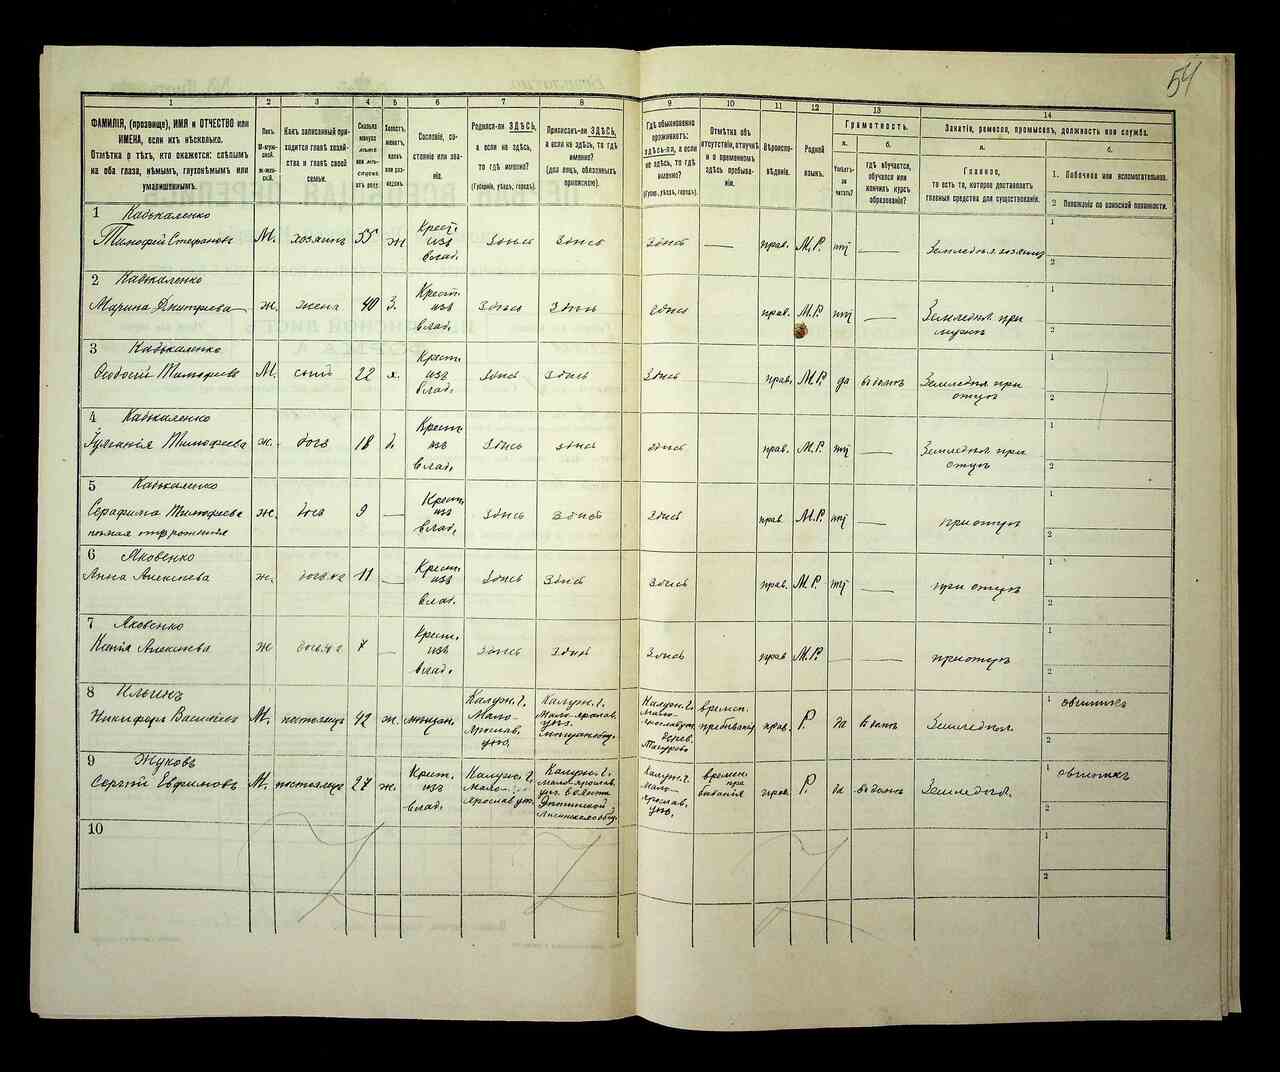 54
1 2 3 4 5 6 7 8 9 10 11 12 13 14
ФАМИЛІЯ, (прозвище), ИМЯ и ОТЧЕСТВО или
ИМЕНА, если ихъ нѣсколько.
Отмѣтка о тѣхъ, кто окажется: слѣпымъ
на оба глаза, нѣмымъ, глухонѣмымъ или
умалишеннымъ.
Полъ.
М-мужской.
Ж-женскій.
Какъ записанный приходится
главѣ хозяйства и главѣ своей
семьи.
Сколько
минуло
лѣтъ
или мѣсяцевъ
отъ роду.
Холостъ,
женатъ,
вдовъ
или разведенъ.
Сословіе, состояніе
или званіе.
Родился-ли ЗДѢСЬ,
а если не здѣсь,
то гдѣ именно?
(Губернія, уѣздъ, городъ).
Приписанъ-ли ЗДѢСЬ,
а если не здѣсь, то гдѣ
именно?
(для лицъ, обязанныхъ
припискою).
Гдѣ обыкновенно
проживаетъ:
здѣсь-ли, а если
не здѣсь, то гдѣ
именно?
(Губер., уѣздъ, городъ).
Отмѣтка объ
отсутствіи, отлучкѣ
и о временномъ
здѣсь пребываніи.
Вѣроисповѣданіе.
Родной
языкъ.
Грамотность.
а.
Умѣетъ-ли
читать?
б.
гдѣ обучается,
обучался или
кончилъ курсъ
образованія?
Занятіе, ремесло, промыселъ, должность или служба.
а.
Главное,
то есть то, которое доставляетъ
главныя средства для существованія.
б.
1. Побочное или вспомогательное.
2 Положеніе по воинской повинности.
1 Кабыкаленко
Тимофей Стефановъ М. хозяинъ 55 ж Крест. изъ влад. Здѣсь Здѣсь Здѣсь — прав. М.Р. нѣт — Земледѣл. хозяинъ
1
2
2 Кабыкаленко
Марина Дмитриева ж. жена 40 з. Крест. изъ влад. Здѣсь Здѣсь Здѣсь прав. М.Р. нѣт — Земледѣл. при мужѣ
1
2
3 Кабыкаленко
Ѳеодосій Тимофеевъ М. сынъ 22 х. Крест. изъ влад. Здѣсь Здѣсь Здѣсь прав. М.Р. да Земледѣл. при отцѣ
1
2
4 Кабыкаленко
Тимофеева ж. дочь 18 д. Крест. изъ влад. Здѣсь Здѣсь Здѣсь прав. М.Р. нѣт — Земледѣл. при отцѣ
1
2
5 Кабыкаленко
Серафима Тимофеева ж. дочь 9 — Крест. изъ влад. Здѣсь Здѣсь Здѣсь прав. М.Р. нѣт — при отцѣ
отъ рожденія
1
2
6 Яковенко
Анна Алексѣева ж. 11 — Крест. изъ влад. Здѣсь Здѣсь Здѣсь прав. М.Р. нѣт — при отцѣ
1
2
7 Яковенко
Ксенія Алексѣева ж 7 — Крест. изъ влад. Здѣсь Здѣсь Здѣсь прав. М.Р. — — при отцѣ
1
2
8 Ильинъ
Никифоръ Васильевъ М. 42 ж. мѣщан. Калуж. г. Мало-Ярослав. уѣз. Калуж. г. Мало-ярослав. уѣз. Калуж. г. Мало-ярославец. дерев. времен. пребыванія прав. Р. да Земледѣл.
1
2
9 Жуковъ
Сергѣй Евфимовъ М. 27 ж. Крест. изъ влад. Калуж. г. Мало-ярослав. уѣз. Калуж. г. Малоярослав. уѣз. волости Калуж. г. Мало-ярослав. уѣз. времен. пребыванія прав. Р. да Земледѣл.
1
2
10
1
2